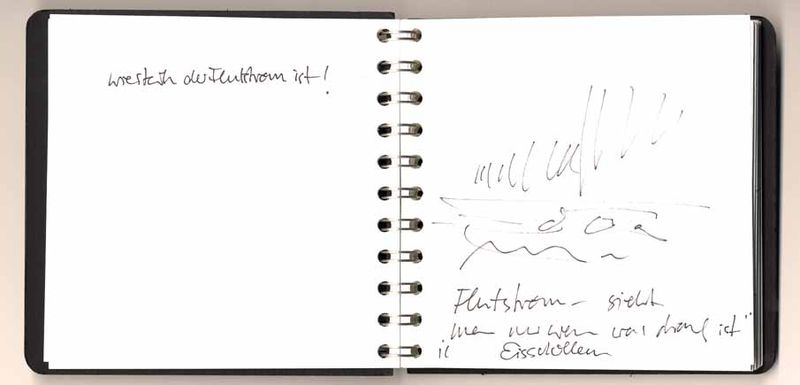 wie stark der Flutstrom ist!
Flutstrom – sieht
man nur wenn was drauf ist"
Eisschollen